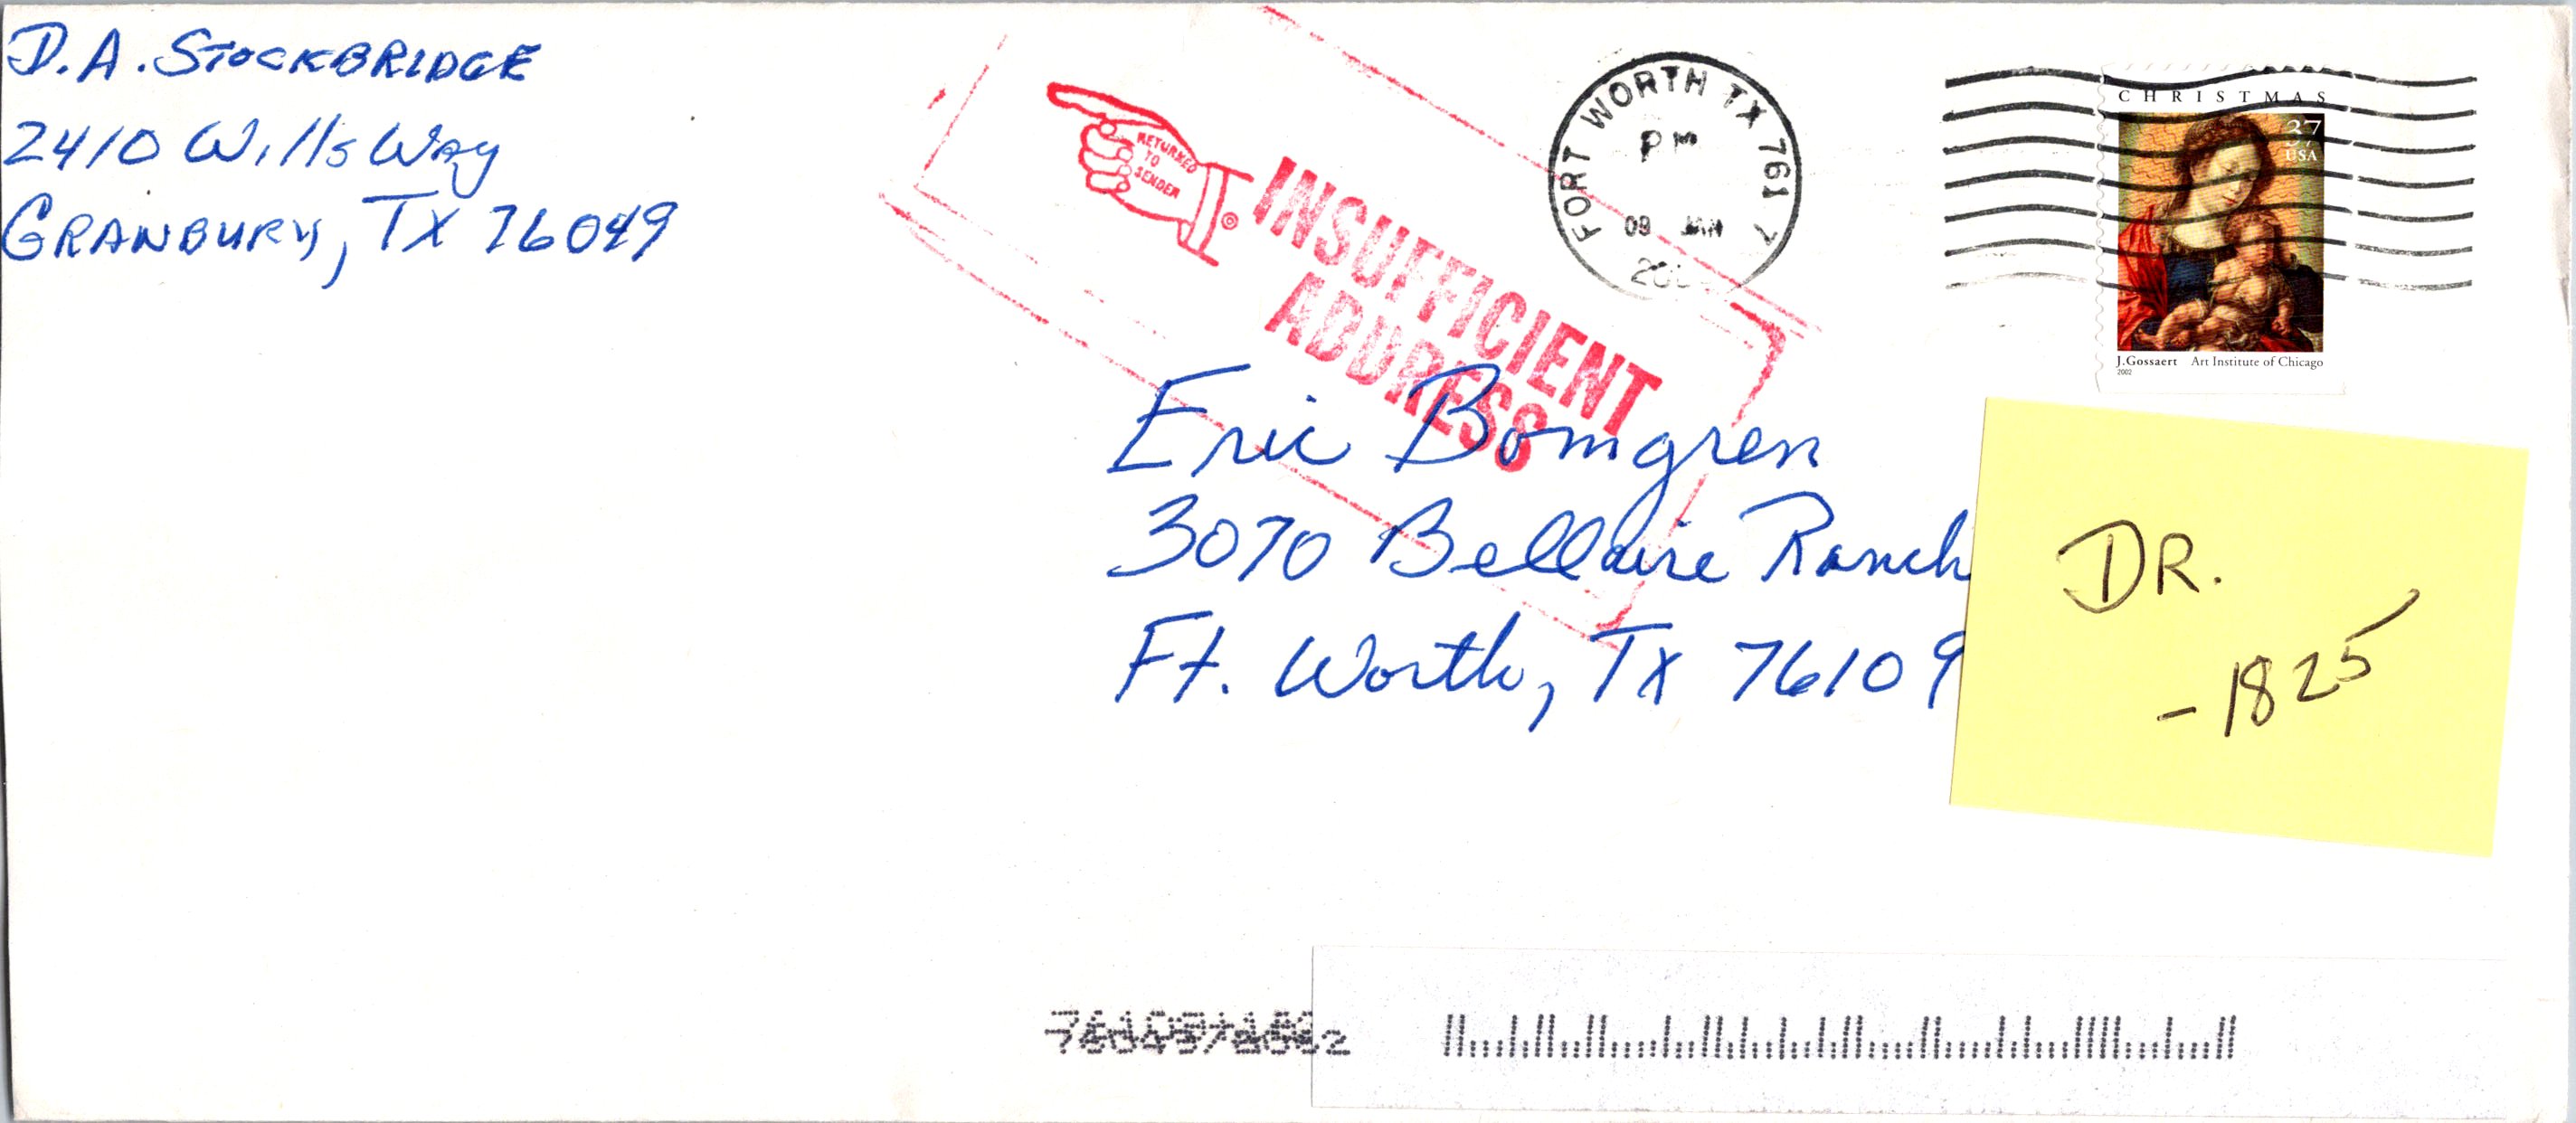 D.A. STOCKBRIDGE
2410 Wills Way
GRANBURY, TX 76049
RETURNED
TO
SENDER
INSUFFICIENT
ADDRESS
FORT WORTH TX 761
PM
09 JAN
CHRISTMAS
37
USA
J.Gossaert Art Institute of Chicago
2002
Eric Bomgren
3070 Bellaire Ranch
Ft. Worth, TX 76109
DR.
-1825